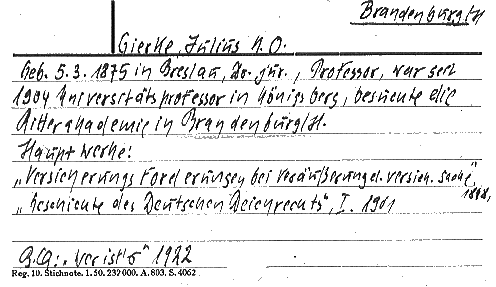 Brandenburg/H
Gierke, Julius K. O.
Geb. 5.3.1875 in Breslau, Dr. jur., Professor, war seit
1904 Universitätsprofessor in Königsberg, besuchte die
Ritterakademie in Brandenburg/H.
Hauptwerke:
„Versicherungsforderungen bei Veräußerung d. versich. Sache",
1898,
„Geschichte des Deutschen Deichrechts", I. 1901
a.a.: „Wer ist's" 1922
Reg. 10. Stichnote. 1. 50. 232000. A. 803. S. 4062